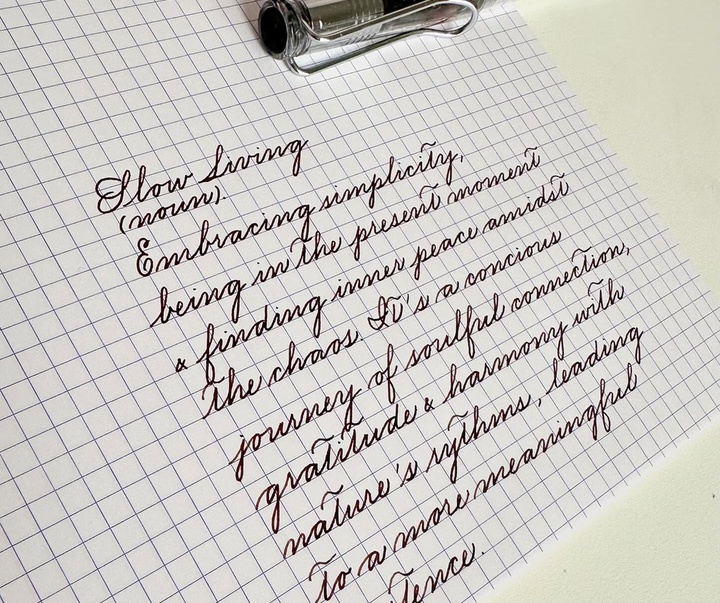 Slow Living
(noun).
Embracing simplicity,
being in the present moment
& finding inner peace amidst
the chaos. It's a concious
journey of soulful connection,
gratitude & harmony with
nature's rythms, leading
to a more meaningful
tence.